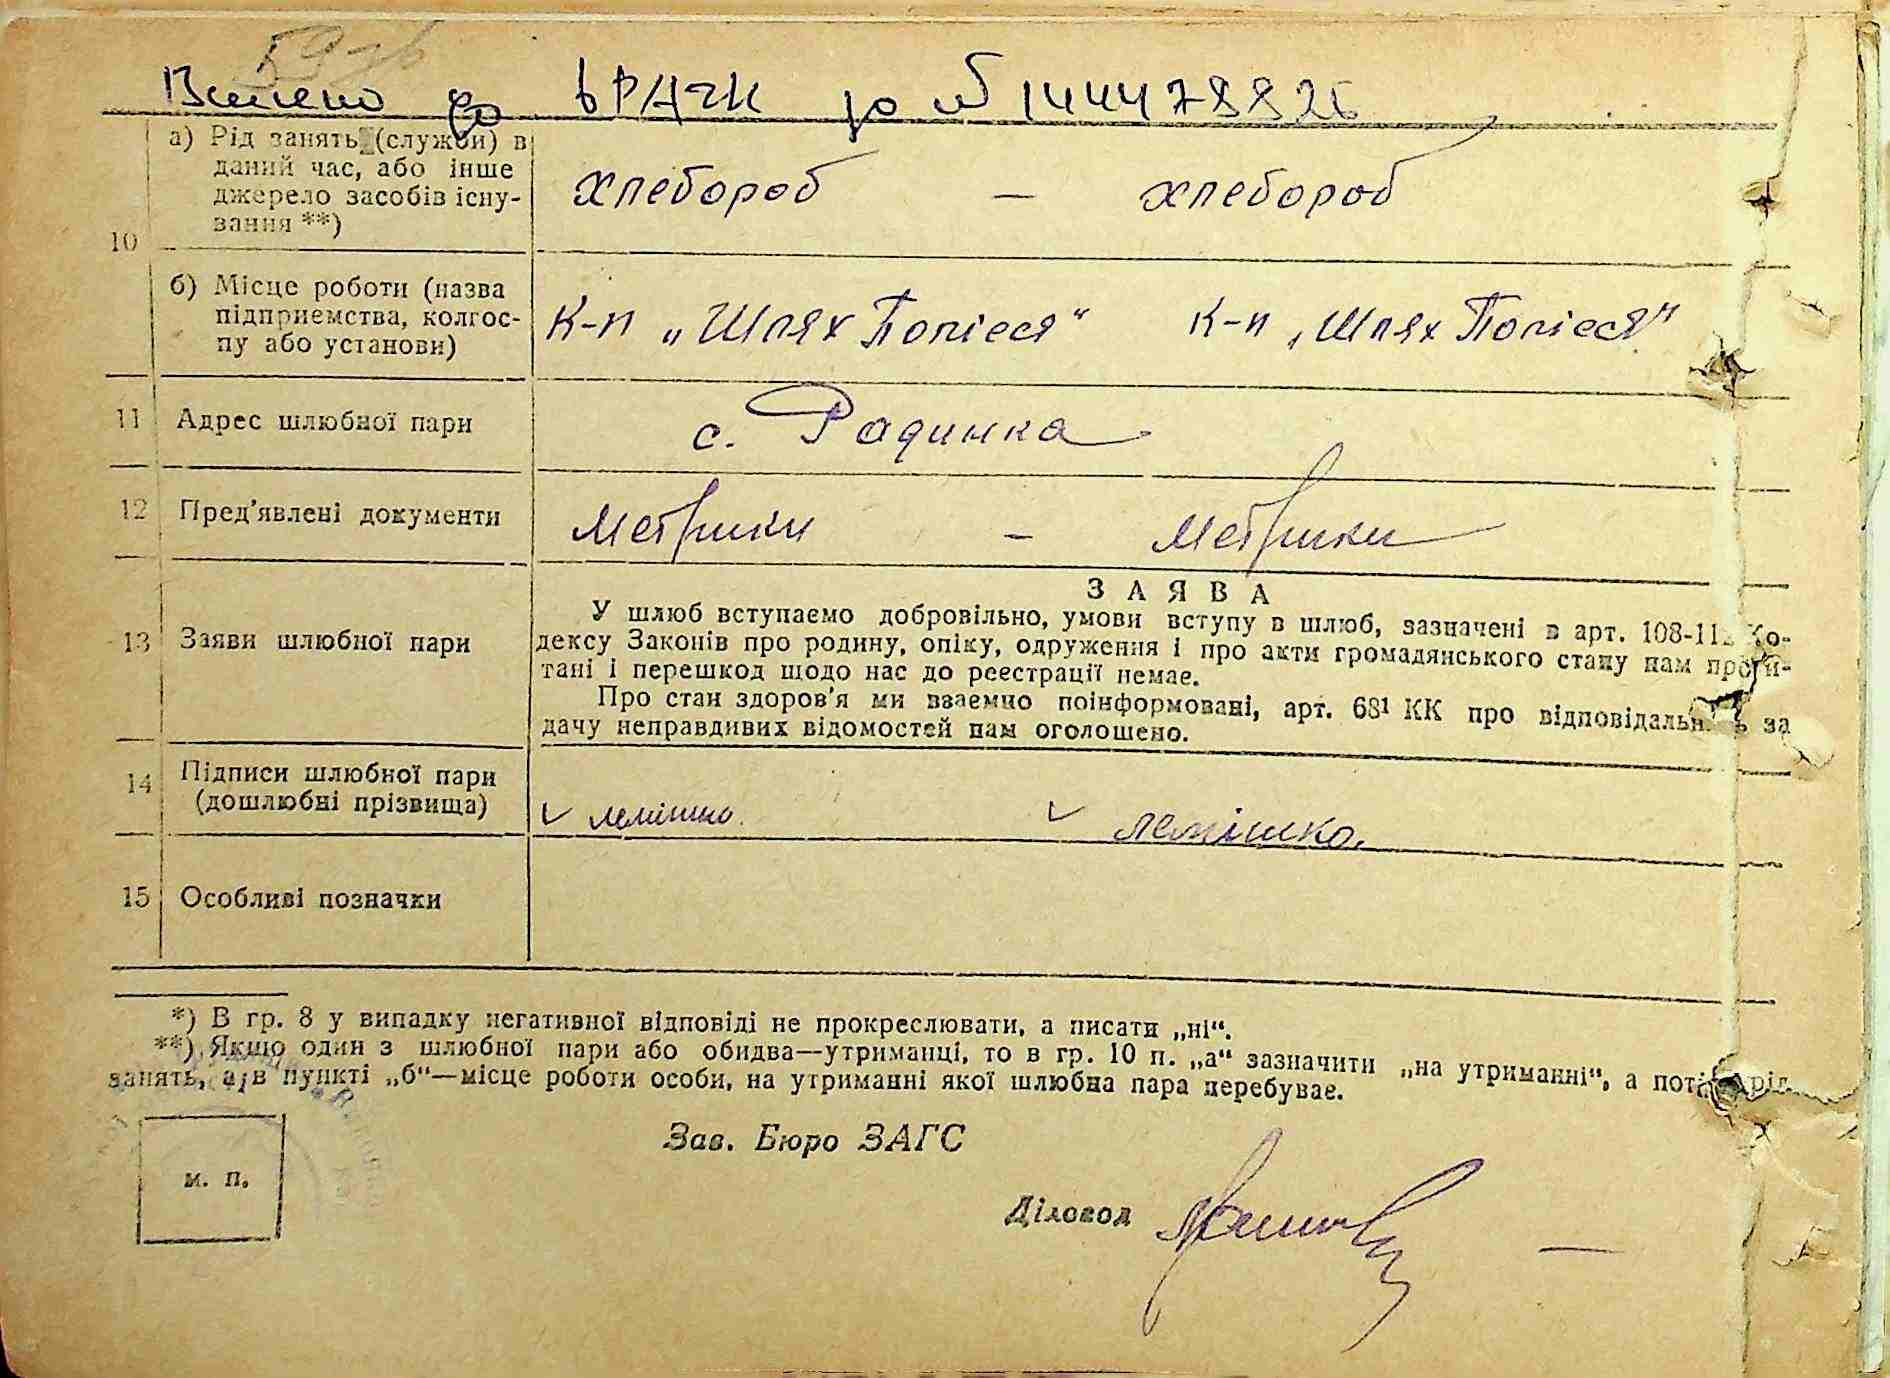 59 зв
Внесено до ДРАЦС за № 144478826
10
а) Рід занять (служби) в
даний час, або інше
джерело засобів існу-
вання **)
хлебороб — хлебороб
б) Місце роботи (назва
підприемства, колгос-
пу або установи)
К-п „Шлях Полісся“ К-п „Шлях Полісся“
11 Адрес шлюбної пари
с. Радинка
12 Пред'явлені документи
Метрики — Метрики
13 Заяви шлюбної пари
ЗАЯВА
У шлюб вступаємо добровільно, умови вступу в шлюб, зазначені в арт. 108-11 Ко-
дексу Законів про родину, опіку, одруження і про акти громадянського стану нам прочи-
тані і перешкод щодо нас до реєстрації немає.
Про стан здоров'я ми взаємно поінформовані, арт. 68¹ КК про відповідальн ь за
дачу неправдивих відомостей нам оголошено.
14 Підписи шлюбної пари
(дошлюбні прізвища)
Лемішко. Лемішко.
15 Особливі позначки
*) В гр. 8 у випадку негативної відповіді не прокреслювати, а писати „ні“.
**) Якщо один з шлюбної пари або обидва—утриманці, то в гр. 10 п. „а“ зазначити „на утриманні“, а потім рід
занять, а в пункті „б“—місце роботи особи, на утриманні якої шлюбна пара перебуває.
м. п.
Зав. Бюро ЗАГС
Діловод